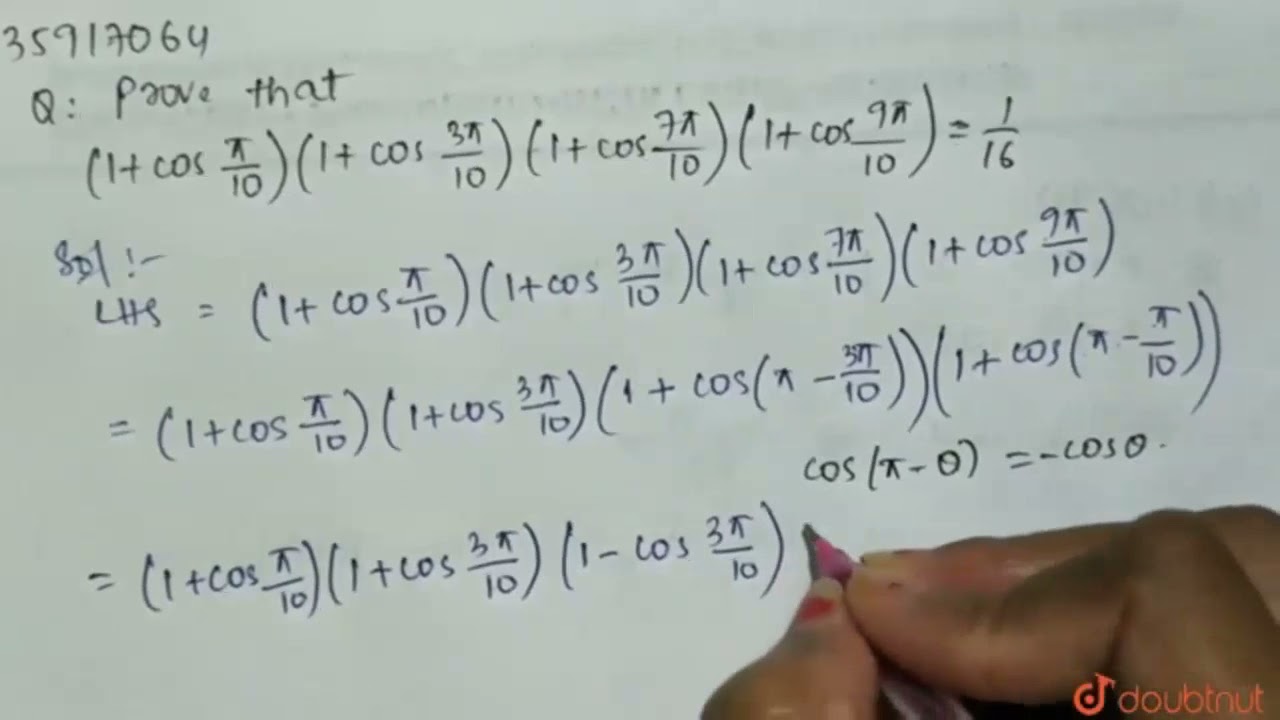 35917064
Q: Prove that
(1 + cos π/10)(1 + cos 3π/10)(1 + cos 7π/10)(1 + cos 9π/10) = 1/16
Sol :-
LHS = (1 + cos π/10)(1 + cos 3π/10)(1 + cos 7π/10)(1 + cos 9π/10)
= (1 + cos π/10)(1 + cos 3π/10)(1 + cos(π - 3π/10))(1 + cos(π - π/10))
cos(π - θ) = -cosθ.
= (1 + cos π/10)(1 + cos 3π/10)(1 - cos 3π/10)
doubtnut